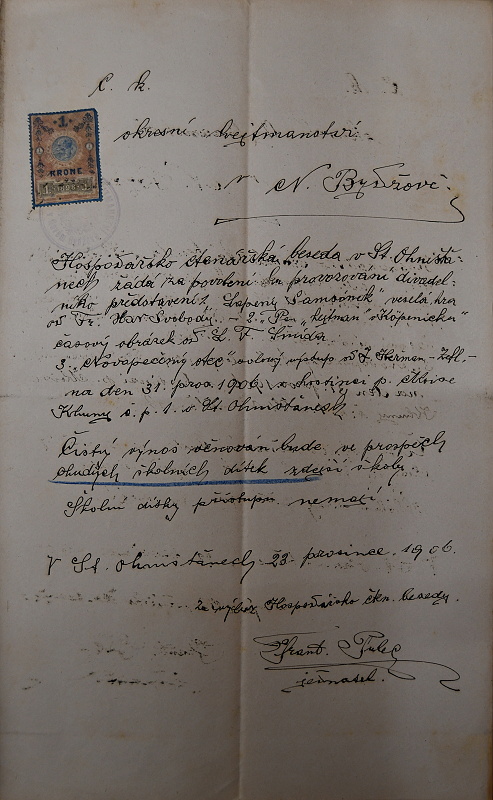 C. k.
1
KRONE
okresní hejtmanství
v N. Bydžově.
Hospodářsko čtenářská beseda v St. Ohništa-
nech žádá za povolení ku provozování divadel-
ního představení 1. "Lapený Samsónek" veselá hra
od Fr. Hav. Svobody. – 2. "Pan hejtman z Kópenicku"
časový obrázek od L. F. Šmída
3. "Novopečený otec" solový výstup od J. Heřman-Zefi –
na den 31. pros. 1906 v hostinci p. Aloise
č. p. 1. v St. Ohništanech.
Čistý výnos věnován bude ve prospěch
chudých školních dítek zdejší školy
Školní dítky přístupu nemají.
V St. Ohništanech 23. prosince 1906.
Za výbor Hospodářsko čten. besedy.
Frant.
jednatel.